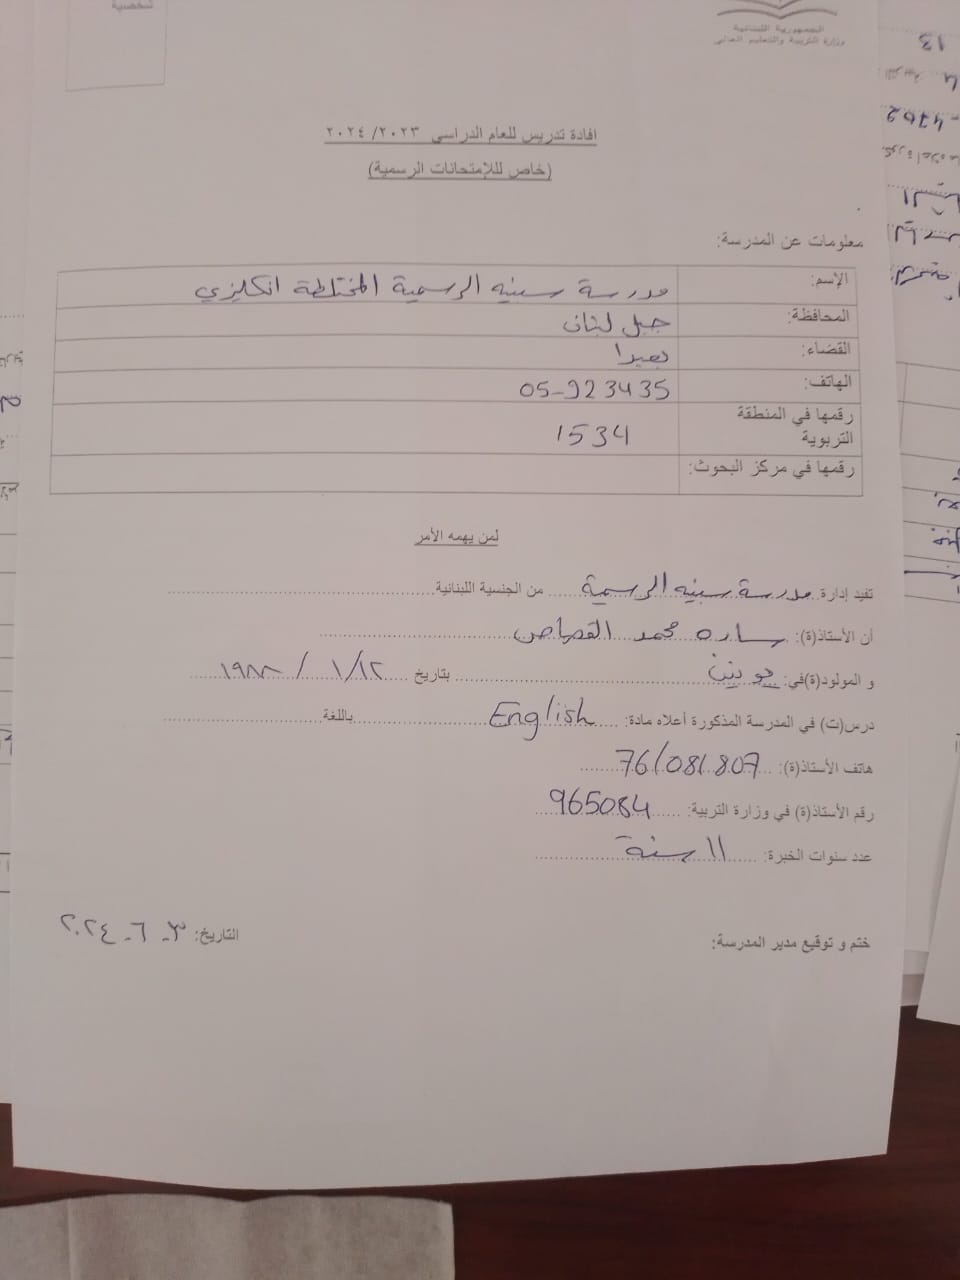 شخصية
الجمهورية اللبنانية
وزارة التربية والتعليم العالي
افادة تدريس للعام الدراسي ٢٠٢٣/ ٢٠٢٤
(خاص للإمتحانات الرسمية)
معلومات عن المدرسة:
الإسم: مدرسة سبنيه الرسمية المختلطة انكليزي
المحافظة: جبل لبنان
القضاء: بعبدا
الهاتف: 05-923435
رقمها في المنطقة التربوية 1534
رقمها في مركز البحوث:
لمن يهمه الأمر
تفيد إدارة مدرسة سبنيه الرسمية من الجنسية اللبنانية
أن الأستاذ(ة): ساره محمد القصاص
و المولود(ة)في: جو بتاريخ ١٢/ ١ / ١٩٨٨
درس(ت) في المدرسة المذكورة أعلاه مادة: English باللغة
هاتف الأستاذ(ة): 76/081807
رقم الأستاذ(ة) في وزارة التربية: 965084
عدد سنوات الخبرة: ١١ سنة
ختم و توقيع مدير المدرسة: التاريخ: ٣- ٦- ٢٠٢٤
13
4702